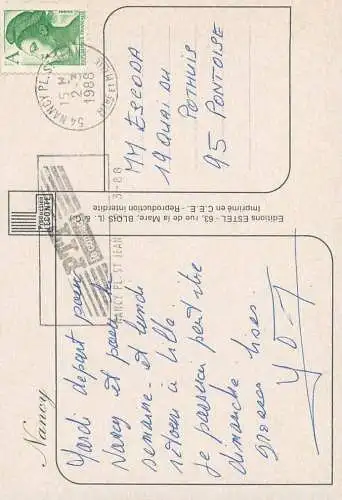 Nancy
Mardi départ pour
Nancy et pour la
semaine - et lundi
retour à Lille
Je passerai peut être
dimanche
grosses bises.
A
54 NANCY PL. ST JEAN
15 H
2-3
1988
MY ESCODA
19 QUAI DU
POTHUIS
95 PONTOISE
Editions ESTEL - 63, rue de la Mare, BLOIS (L. & C.)
Imprimé en C.E.E. - Reproduction interdite
NANCY PL. ST JEAN
3-88